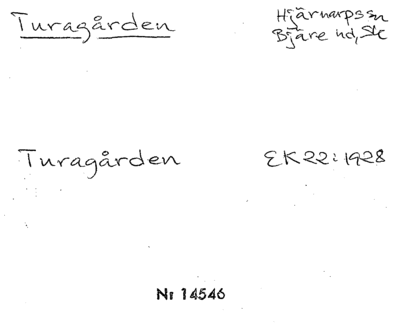 Turagården
Hjärnarpssn
Bjäre hd, Sk
Turagården
EK22:1928
Nr 14546